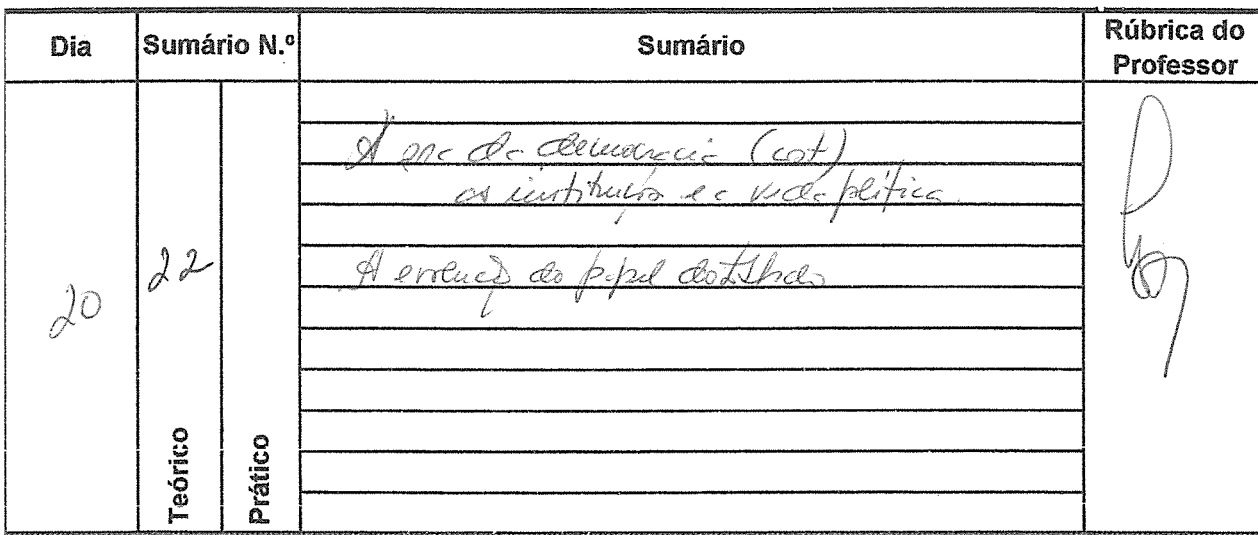 Dia Sumário N.º Sumário Rúbrica do Professor
A era da democracia (cot)
as instituições e a vida política
22
A evolução do papel do Estado
20
Teórico Prático